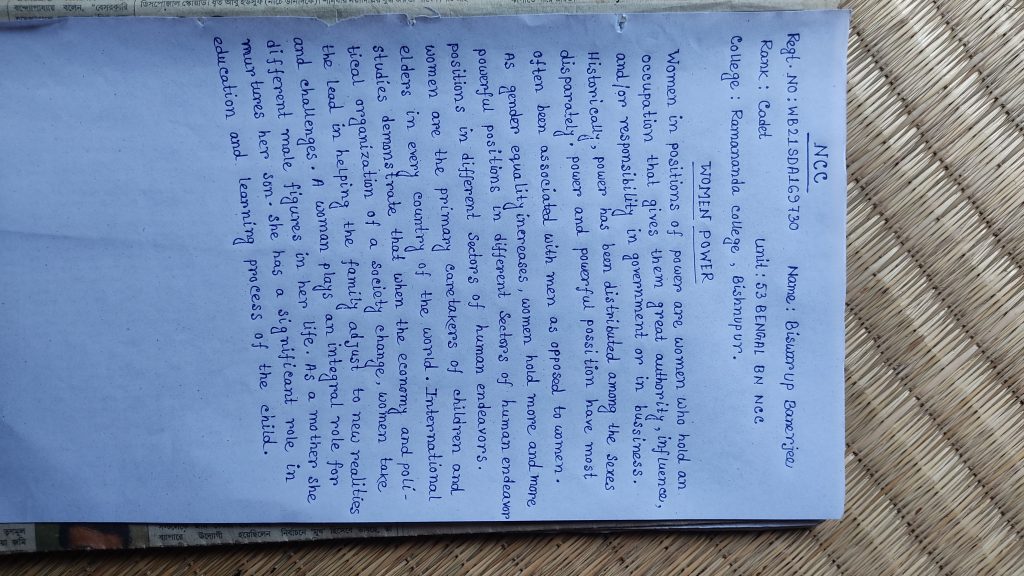 NCC
Regt. NO: WB21SDA169730 Name: Biswarup Banerjee
Rank: Cadet unit: 53 BENGAL BN NCC
College: Ramananda college, Bishnupur.
WOMEN POWER
Women in positions of power are women who hold an
occupation that gives them great authority, influence,
and/or responsibility in government or in bussiness.
Historically, power has been distributed among the sexes
disparately. power and powerful possition have most
often been associated with men as opposed to women.
As gender equality increases, women hold more and more
powerful positions in different sectors of human endeavor
positions in different sectors of human endeavors.
women are the primary caretakers of children and
elders in every country of the world. International
studies demonstrate that when the economy and poli-
tical organization of a society change, women take
the lead in helping the family adjust to new realities
and challenges. A woman plays an integral role for
different male figures in her life. As a mother she
murtures her son. she has a significant role in
education and learning process of the child.